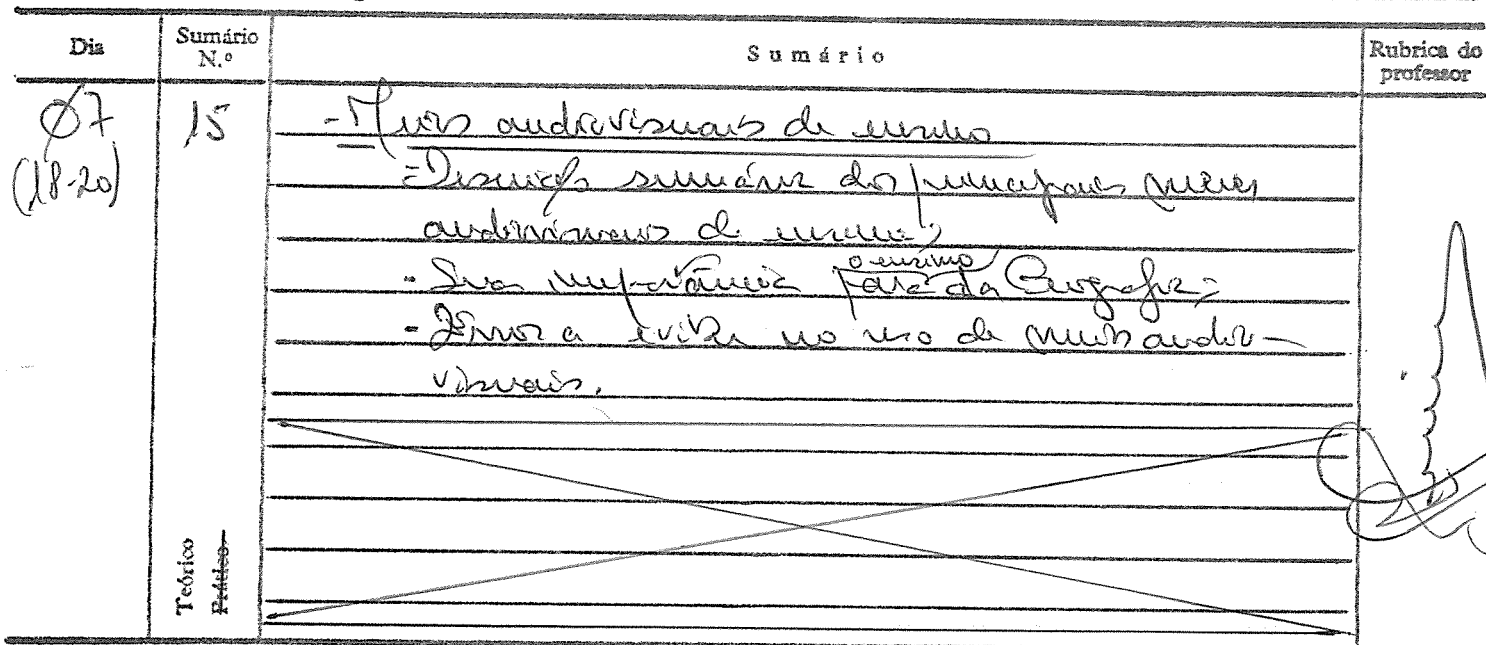 Dia
Sumário N.º
Sumário
Rubrica do professor
Ø7
(18-20)
15
- Meios audiovisuais de ensino
- Descrição sumária dos principais meios
audiovisuais de ensino;
- Sua importância para o ensino da Geografia;
- Erros a evitar no uso de meios audio-
visuais.
Teórico
Prático